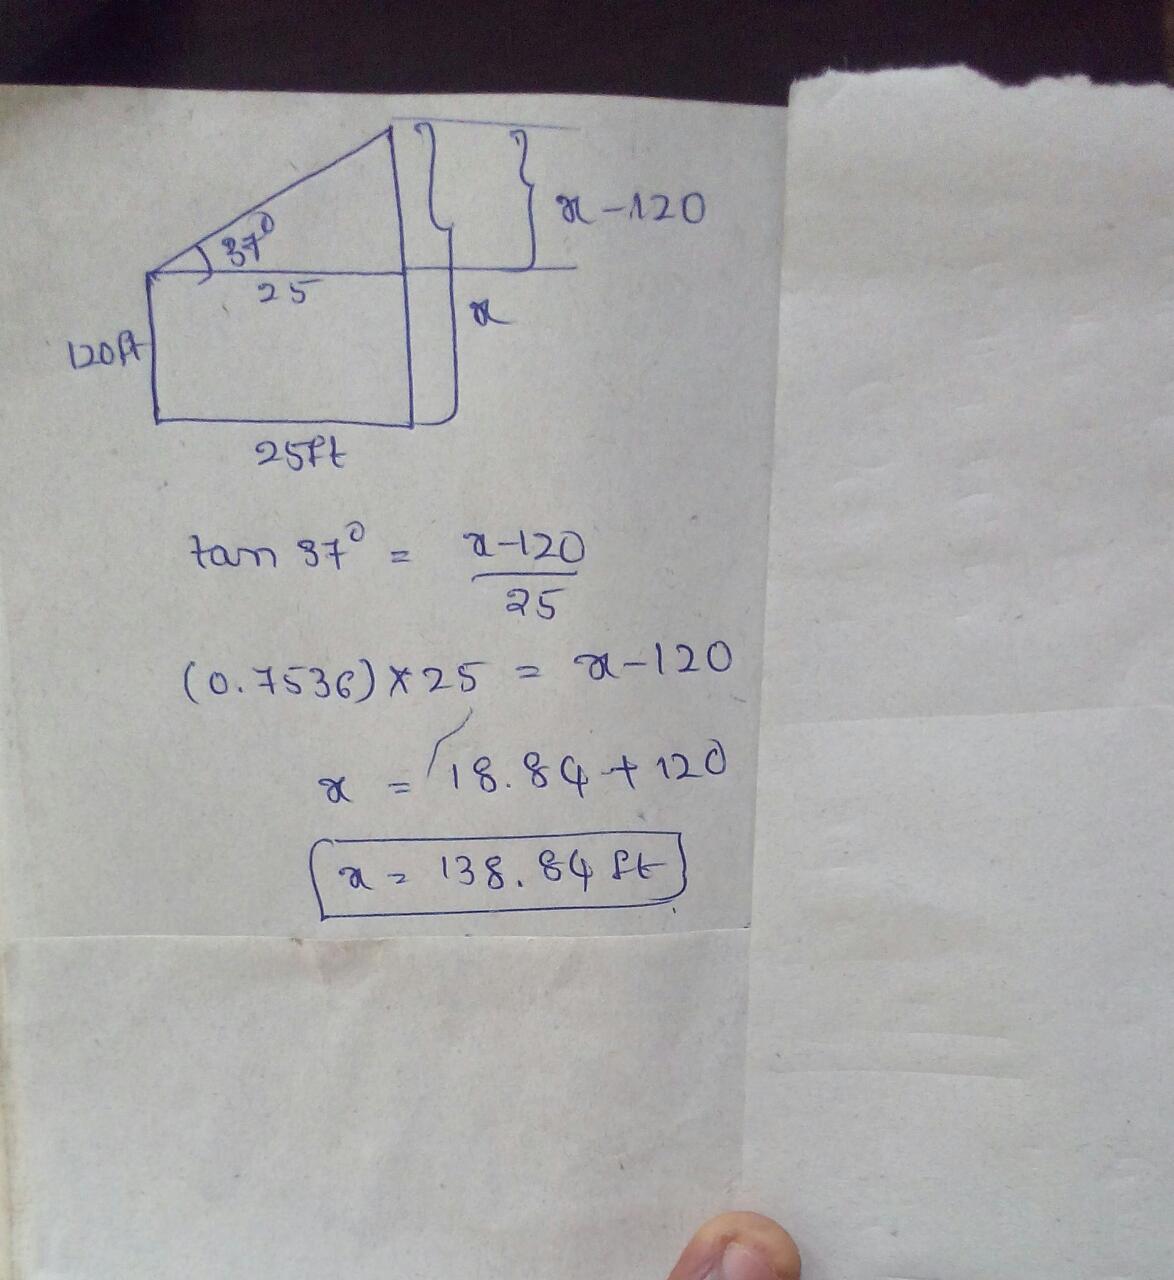 37⁰
x - 120
25
x
120ft
25ft
tan 37⁰ = x-120
25
(0.7536) × 25 = x-120
x = 18.84 + 120
x = 138.84 ft